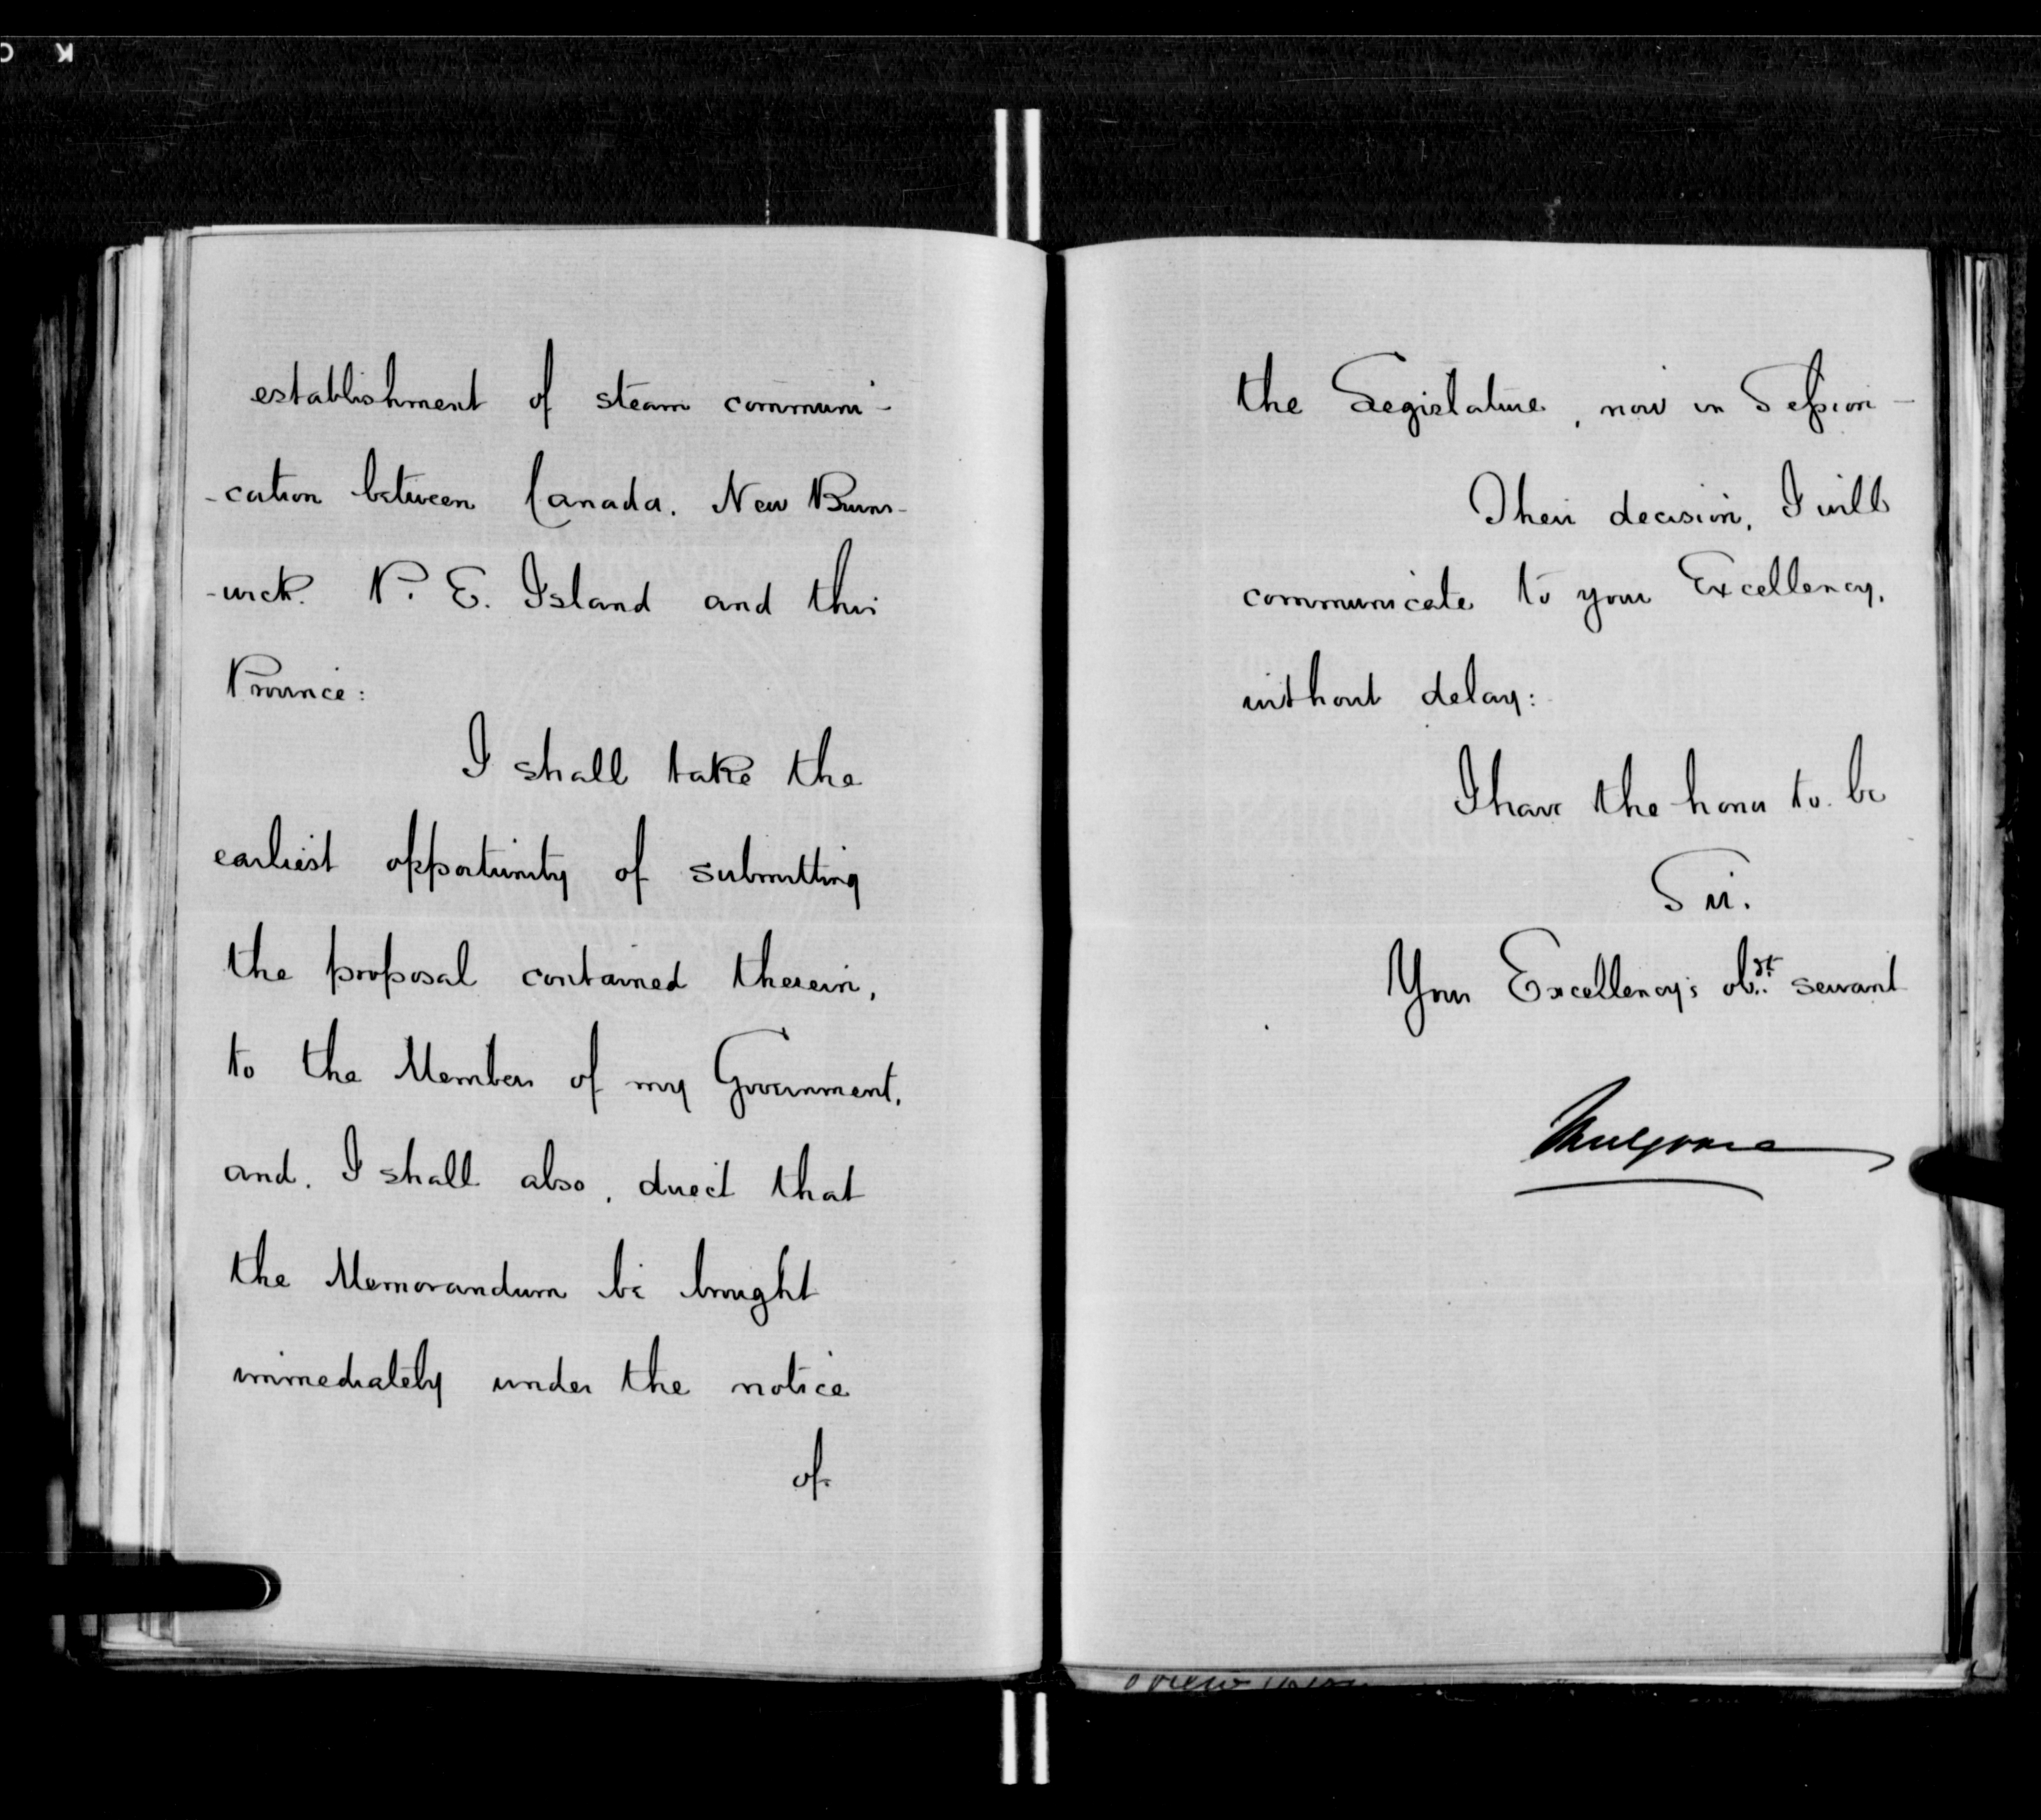 establishment of steam communi-
-cation between Canada. New Bruns-
-wick. P. E. Island and this
Province:
I shall take the
earliest opportunity of submitting
the proposal contained therein,
to the Members of my Government,
and, I shall also, direct that
the Memorandum be brought
immediately under the notice
of
the Legislature, now in Session -
Their decision, I will
communicate to your Excellency,
without delay:
I have the honor to be
Sir.
Your Excellency's obt. servant
Mulgrave